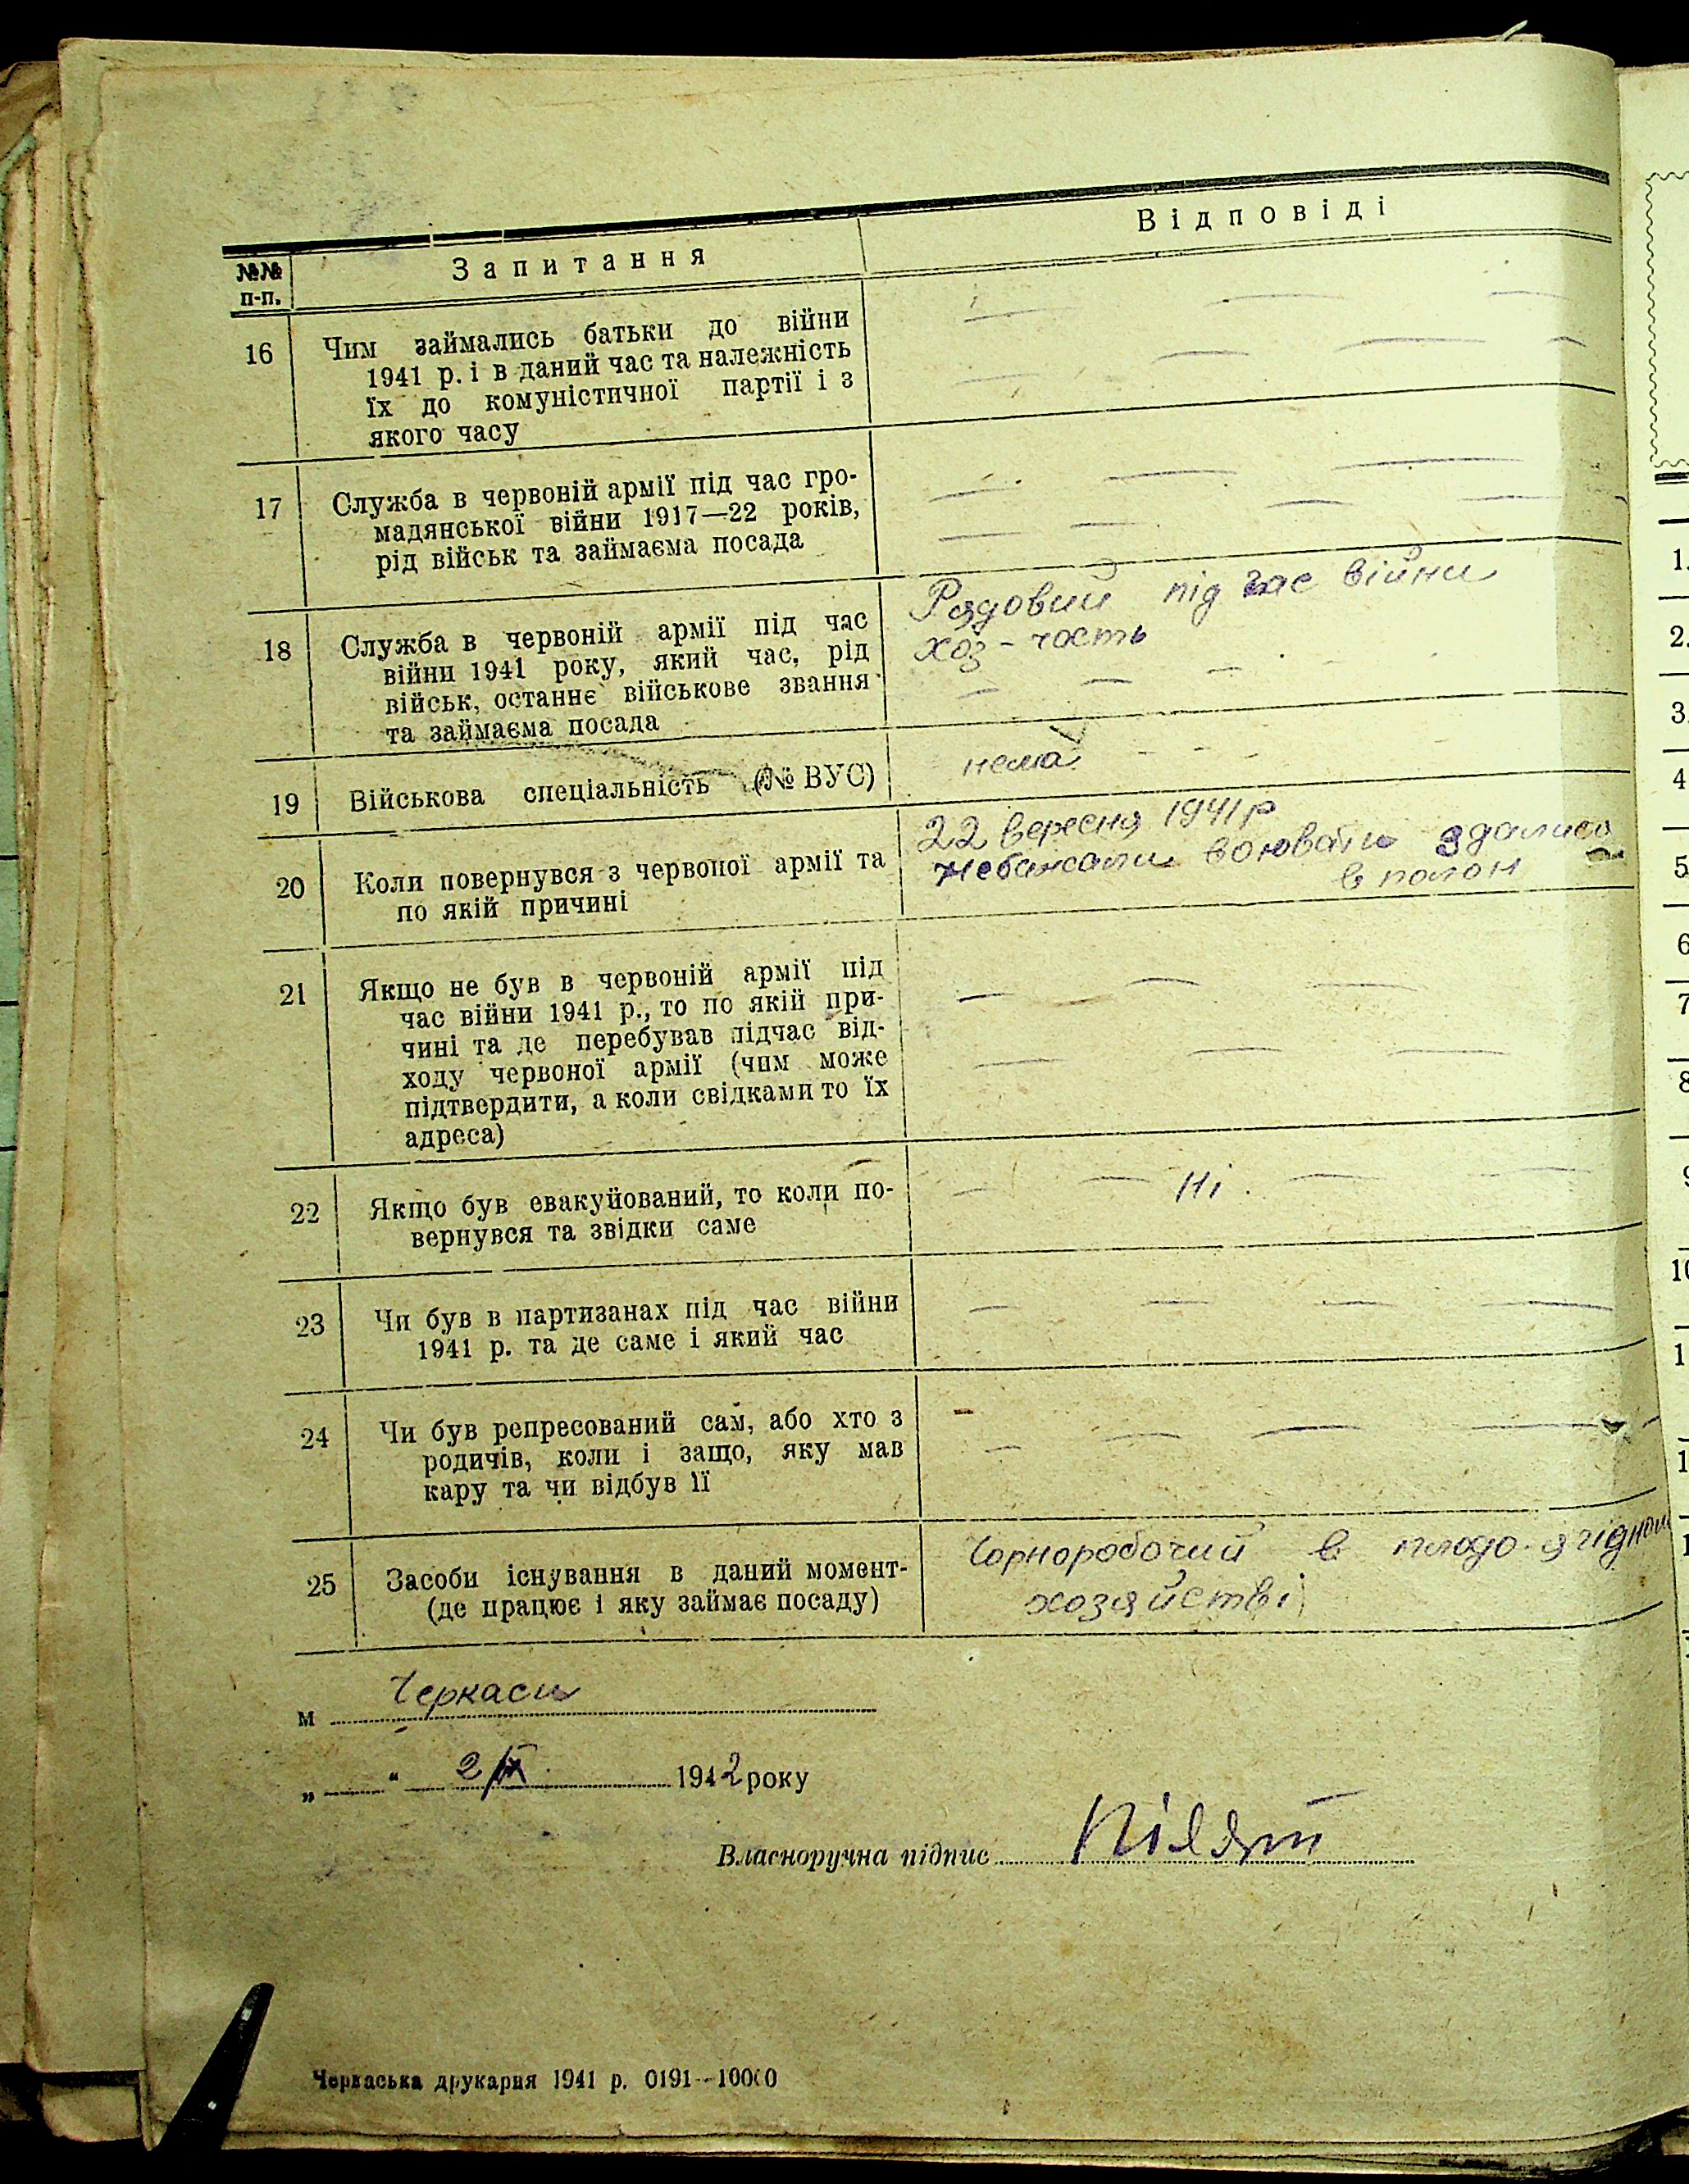 №№ п-п.
Запитання
Відповіді
16
Чим займались батьки до війни
1941 р. і в даний час та належність
їх до комуністичної партії і з
якого часу
17
Служба в червоній армії під час гро-
мадянської війни 1917—22 років,
рід військ та займаєма посада
18
Служба в червоній армії під час
війни 1941 року, який час, рід
військ, останнє військове звання
та займаєма посада
Рядовий під час війни
хоз-часть
19
Військова спеціальність (№ ВУС)
нема
20
Коли повернувся з червоної армії та
по якій причині
22 вересня 1941 р
Небажали воювати здались
в полон
21
Якщо не був в червоній армії під
час війни 1941 р., то по якій при-
чині та де перебував підчас від-
ходу червоної армії (чим може
підтвердити, а коли свідками то їх
адреса)
22
Якщо був евакуйований, то коли по-
вернувся та звідки саме
Ні.
23
Чи був в партизанах під час війни
1941 р. та де саме і який час
24
Чи був репресований сам, або хто з
родичів, коли і защо, яку мав
кару та чи відбув її
25
Засоби існування в даний момент-
(де працює і яку займає посаду)
Чорноробочий в плодо-ягідном
хозяйстві
м Черкаси
„ “ 2/IX 1942 року
Власноручна підпис
Черкаська друкарня 1941 р. 0191—10000
1.
2.
3.
4
5
6
7
8
9
10